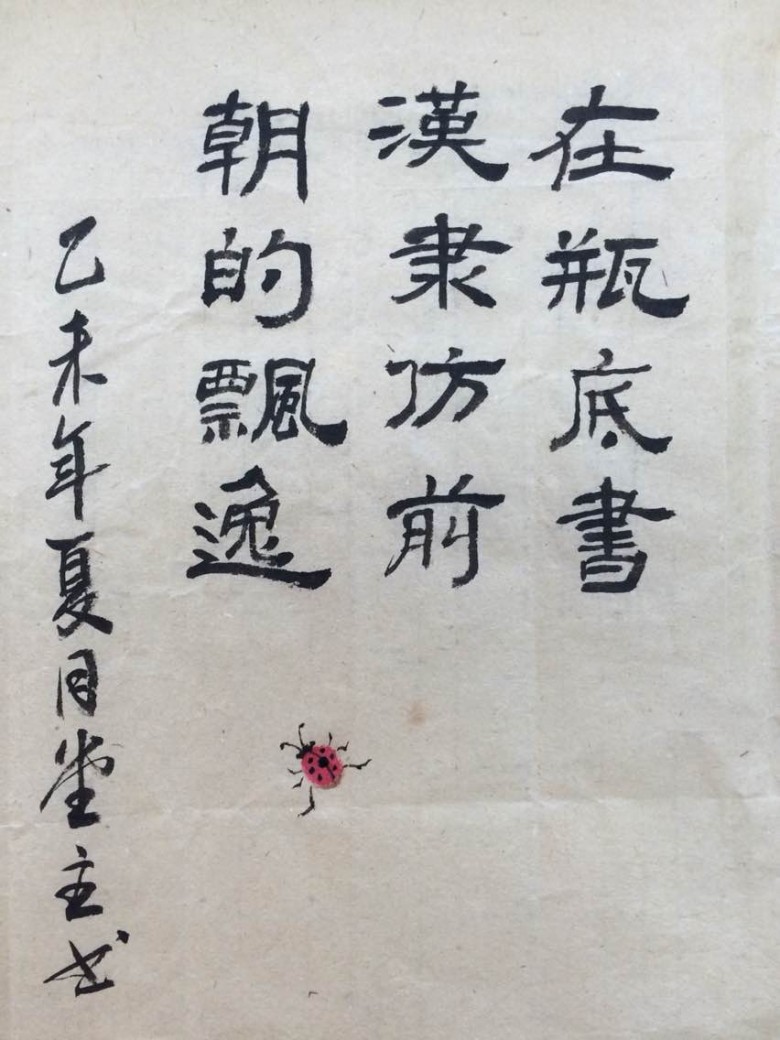 在瓶底書
漢隶仿前
朝的飄逸
乙未年夏月堂主书